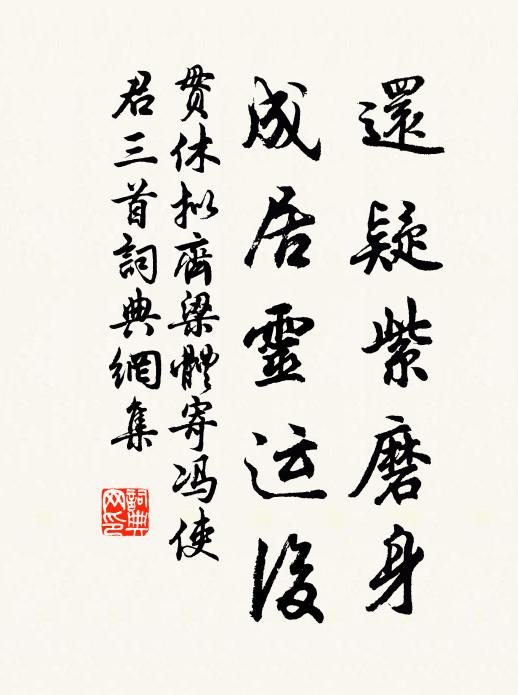 還疑紫磨身
成居靈运後
贯休拟齊梁體寄冯使
君三首詞典網集
詞典
网印